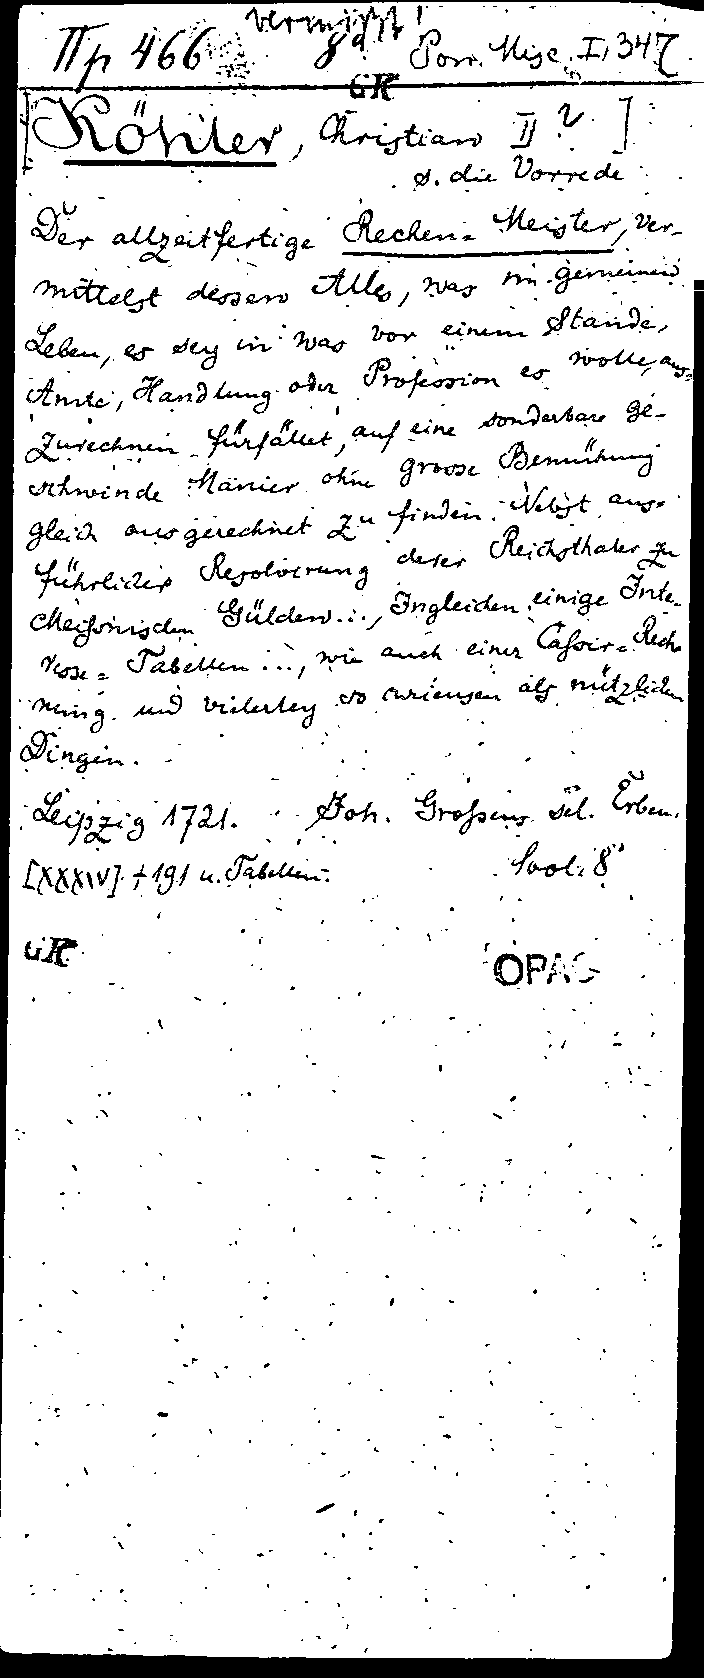 vermißt!
Πp 466 8° Porr. Misc. I, 347.
GK
[Köhler, Christian II ? ]
s. die Vorrede
Der allzeitfertige Rechen= Meister, Ver-
mittelst dessen Alles, was im gemeinen
Leben, es sey in was vor einem Stande,
Amte, Handlung oder Profession es wolle, aus=
zurechnen fürfället, auf eine sonderbare ge-
schwinde Manier ohne grosse Bemühung
gleich ausgerechnet zu finden. Nebst aus=
führlicher Resolvirung derer Reichsthaler zu
Meißnischen Gülden..., Ingleichen einige Inte-
resse= Tabellen ..., wie auch einer Cassir= Rech-
nung und vielerley so curieusen als nützlichen
Dingen.
Leipzig 1721. Joh. Großens sel. Erben.
[XXXIV] + 191 u. Tabellen. 8°
GK OPAC